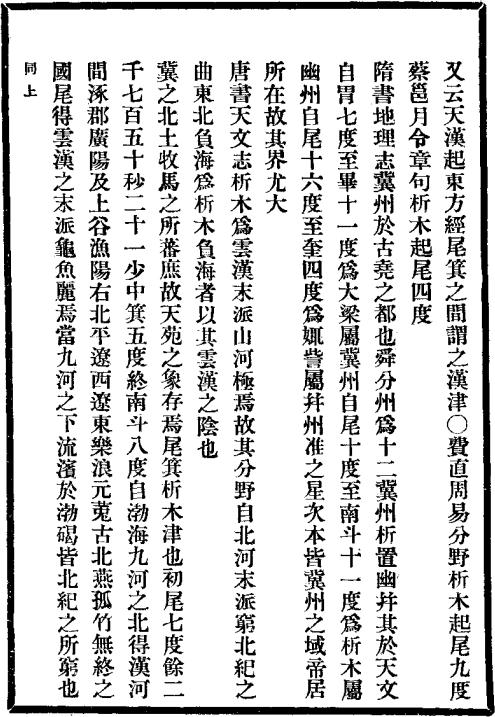 又云天漢起東方經尾箕之間謂之漢津○費直周易分野析木起尾九度
蔡邕月令章句析木起尾四度
隋書地理志冀州於古堯之都也舜分州爲十二冀州析置幽幷其於天文
自胃七度至畢十一度爲大梁屬冀州自尾十度至南斗十一度爲析木屬
幽州自尾十六度至奎四度爲娵訾屬幷州准之星次本皆冀州之域帝居
所在故其界尤大
唐書天文志析木爲雲漢末派山河極焉故其分野自北河末派窮北紀之
曲東北負海爲析木負海者以其雲漢之陰也
冀之北土牧馬之所蕃庶故天苑之象存焉尾箕析木津也初尾七度餘二
千七百五十秒二十一少中箕五度終南斗八度自渤海九河之北得漢河
間涿郡廣陽及上谷漁陽右北平遼西遼東樂浪元菟古北燕孤竹無終之
國尾得雲漢之末派龜魚麗焉當九河之下流濱於渤碣皆北紀之所窮也
同上